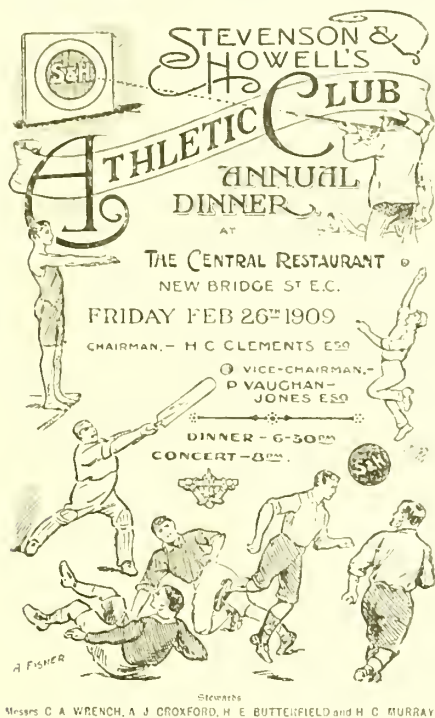 S&H
STEVENSON &
HOWELL'S
ATHLETIC CLUB
ANNUAL
DINNER
AT
THE CENTRAL RESTAURANT
NEW BRIDGE ST E.C.
FRIDAY FEB 26TH 1909
CHAIRMAN,- H C CLEMENTS ESQ
VICE-CHAIRMAN,-
P VAUGHAN-
JONES ESQ
DINNER - 6-30PM
CONCERT - 8PM.
S&H
A FISHER
Stewards
Messrs C A WRENCH, A J CROXFORD, H E BUTTERFIELD and H C MURRAY